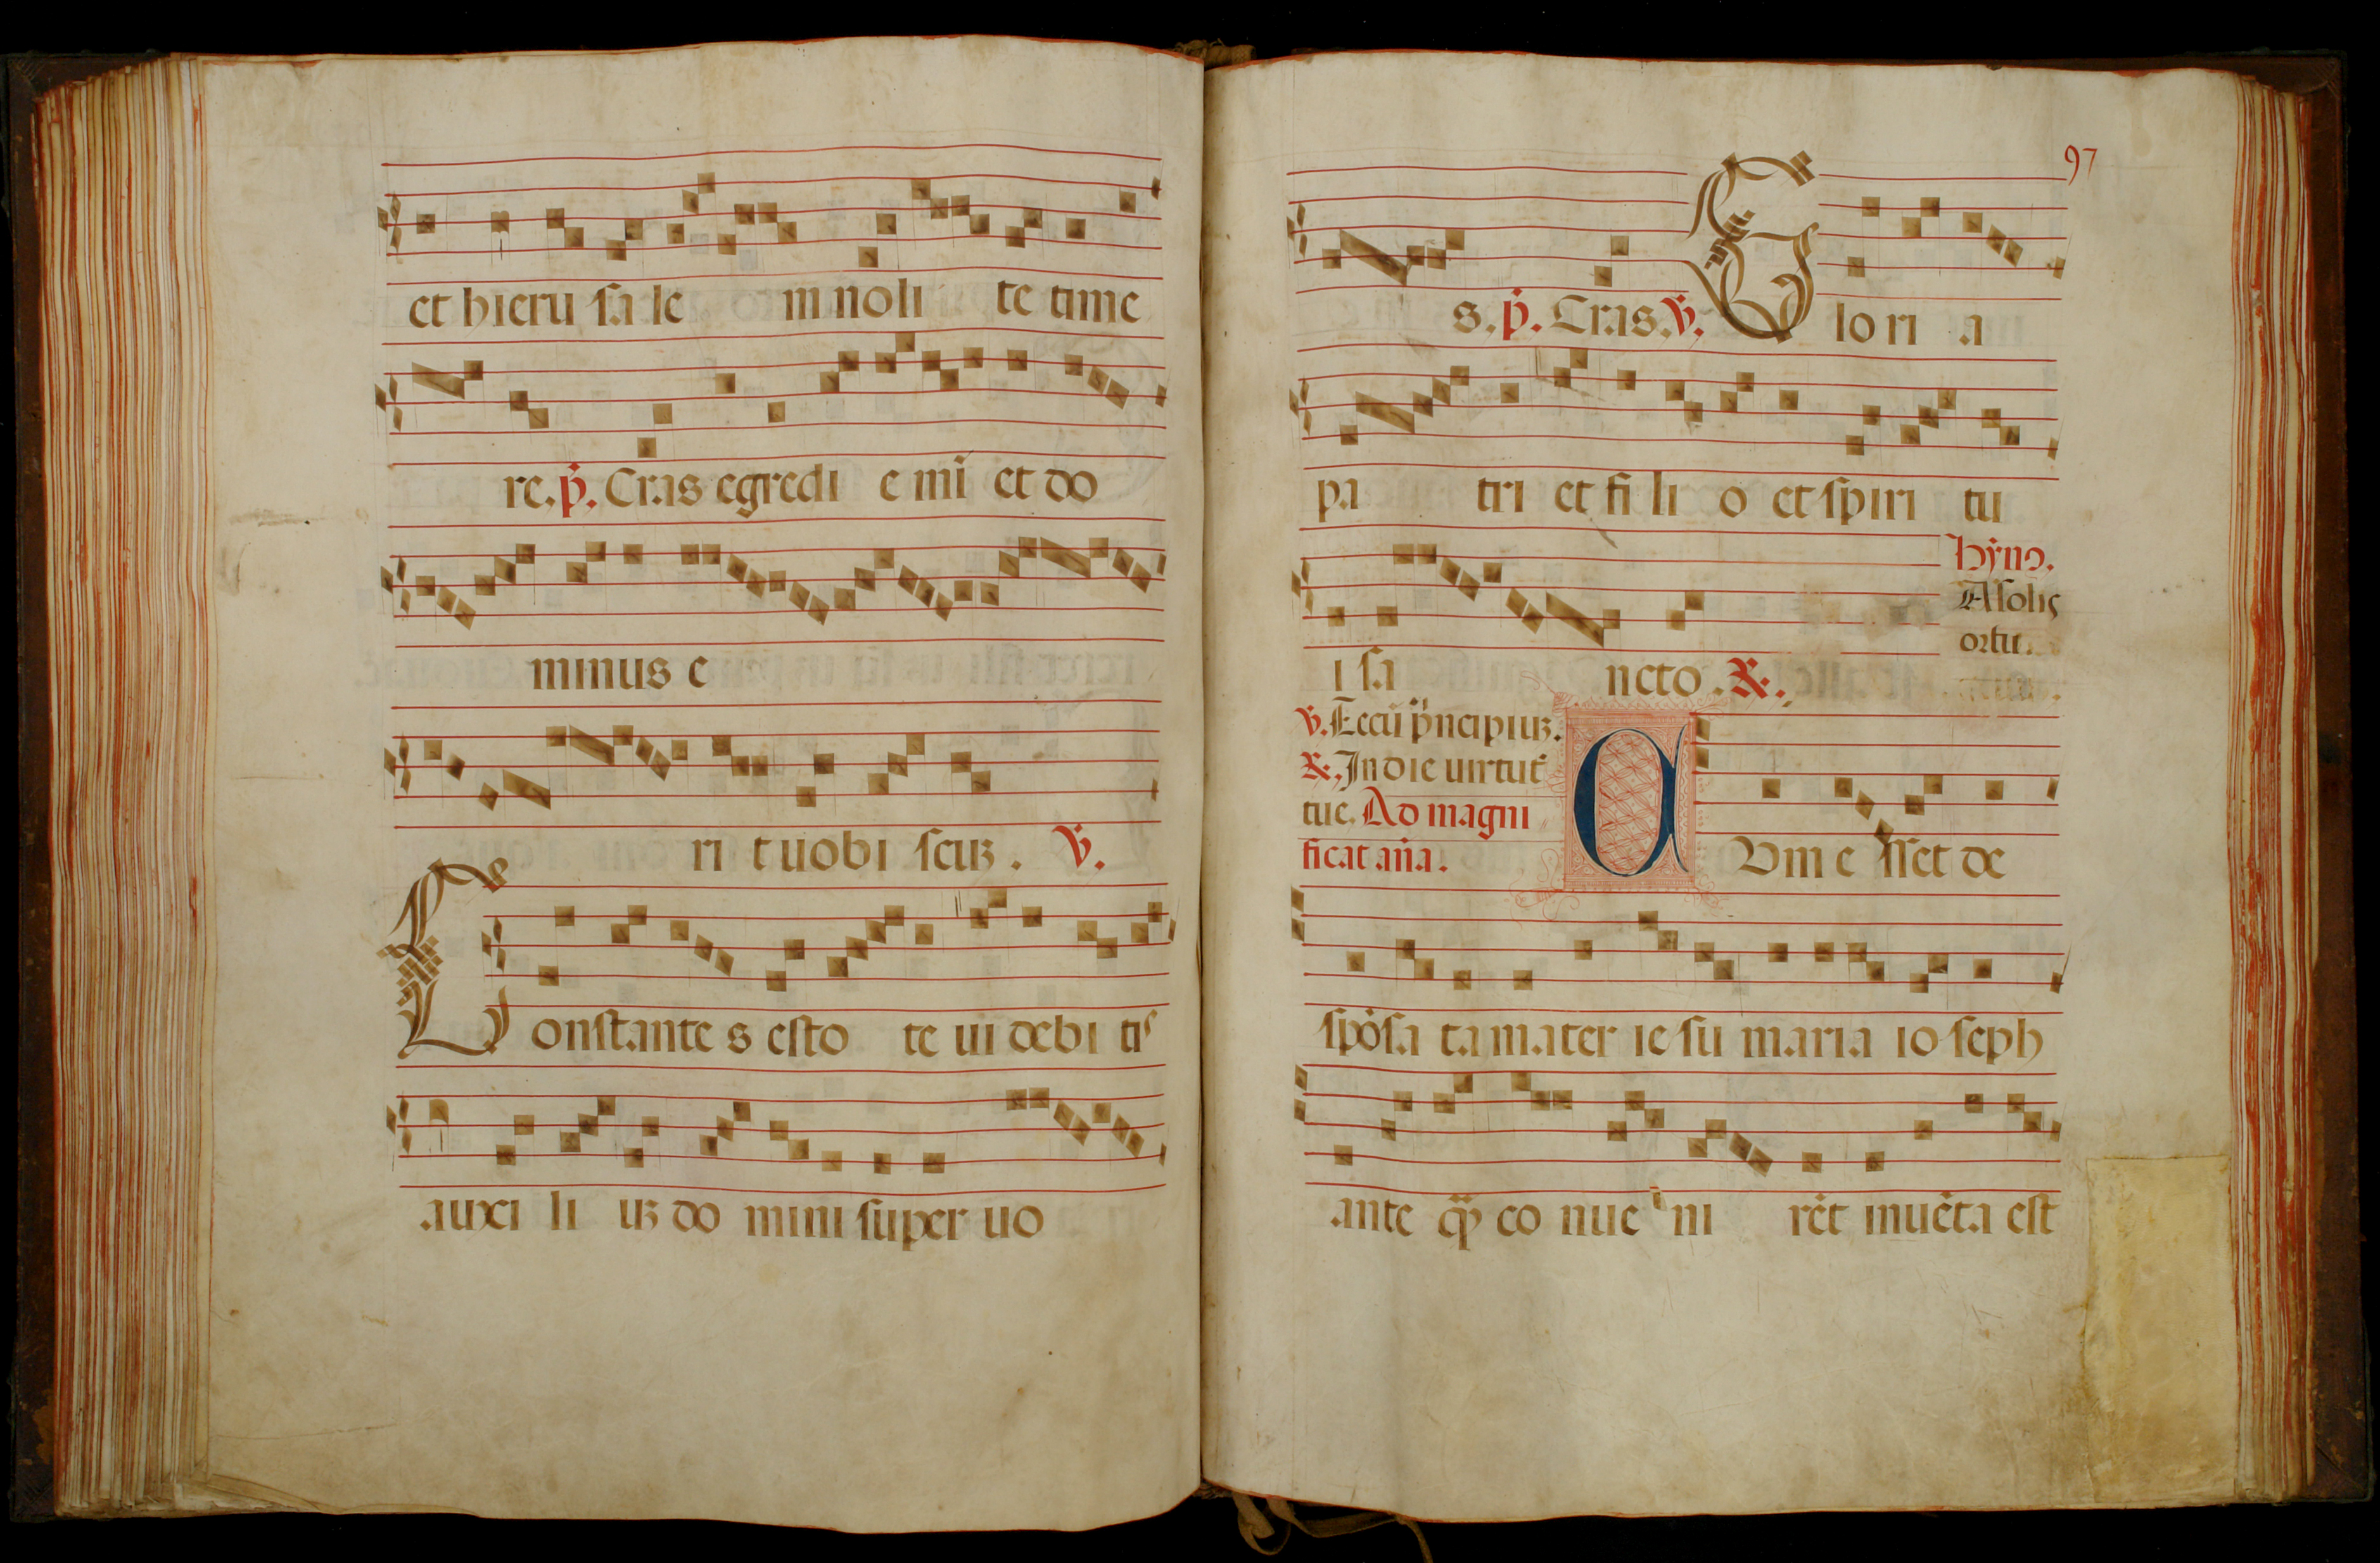 et hieru sa le m noli te time
re. p. Cras egredi e mĩ et do
minus e
ri t uobi scuꝫ. V.
Constante s esto te ui debi tis
auxi li uꝫ do mini super uo
97
s. p. Cras. V. Glo ri a
pa tri et fi li o et spiri tu
i sa ncto. R.
Hỹno.
A solis
ortu.
V. Tecũ p̃ncipiuꝫ.
R. In die uirtut̃
tue. Ad magni
ficat añа.
CVm e sset de
spõsa ta mater ie su maria io seph
ante q̃ꝫ co nue ni rẽt inuẽta est